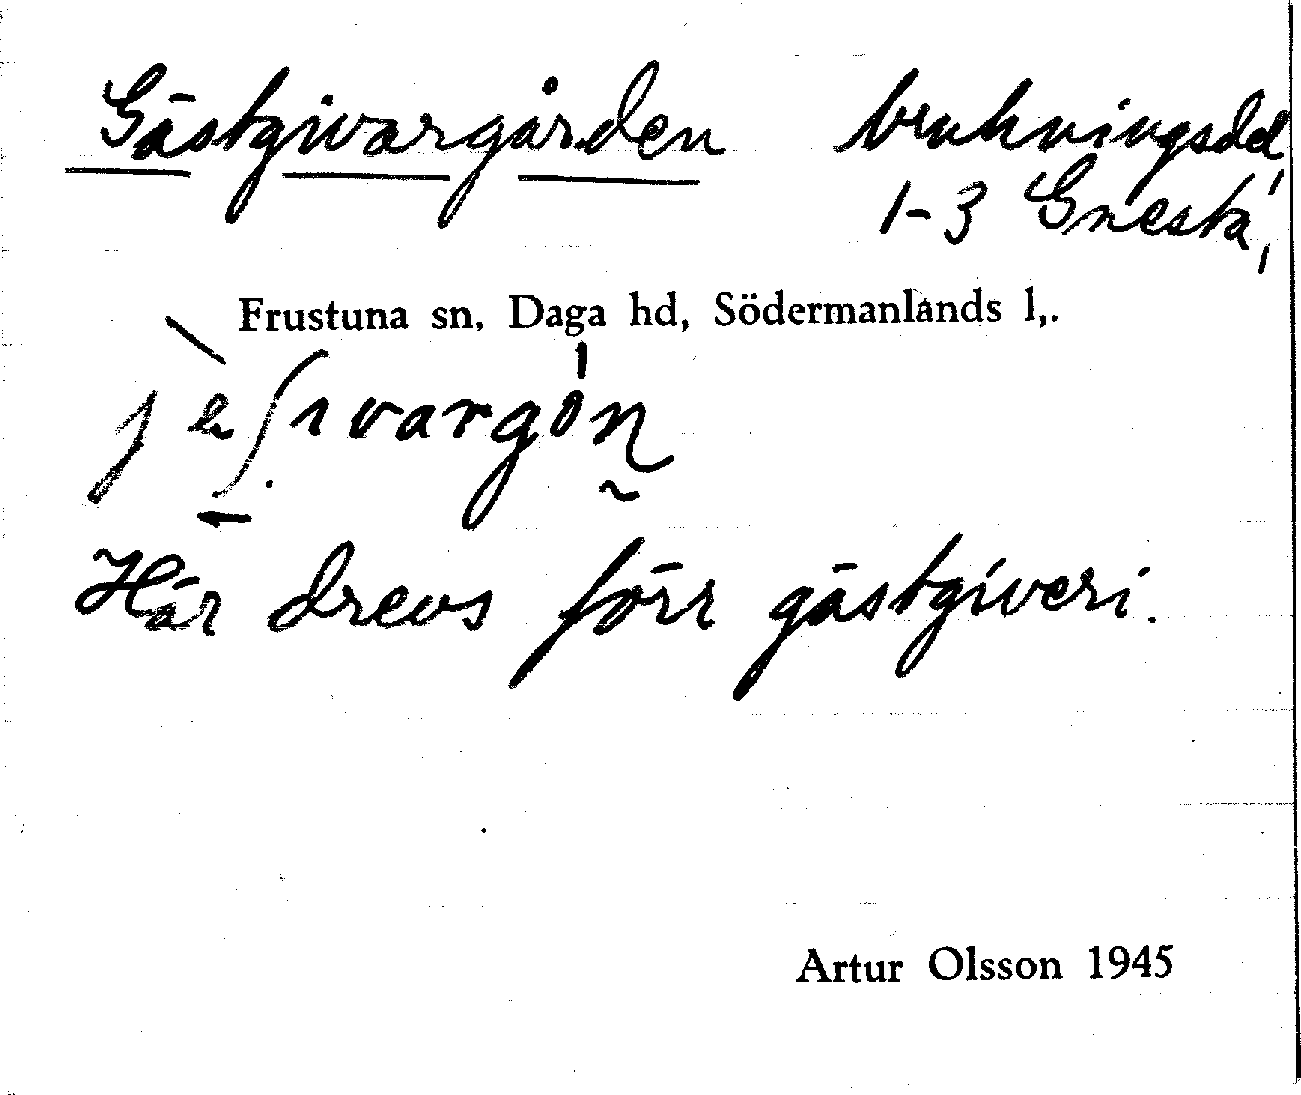 Gästgivargården brukningsdel,
1-3 Gnesta,
Frustuna sn, Daga hd, Södermanlands l,.
Här drevs förr gästgiveri.
Artur Olsson 1945